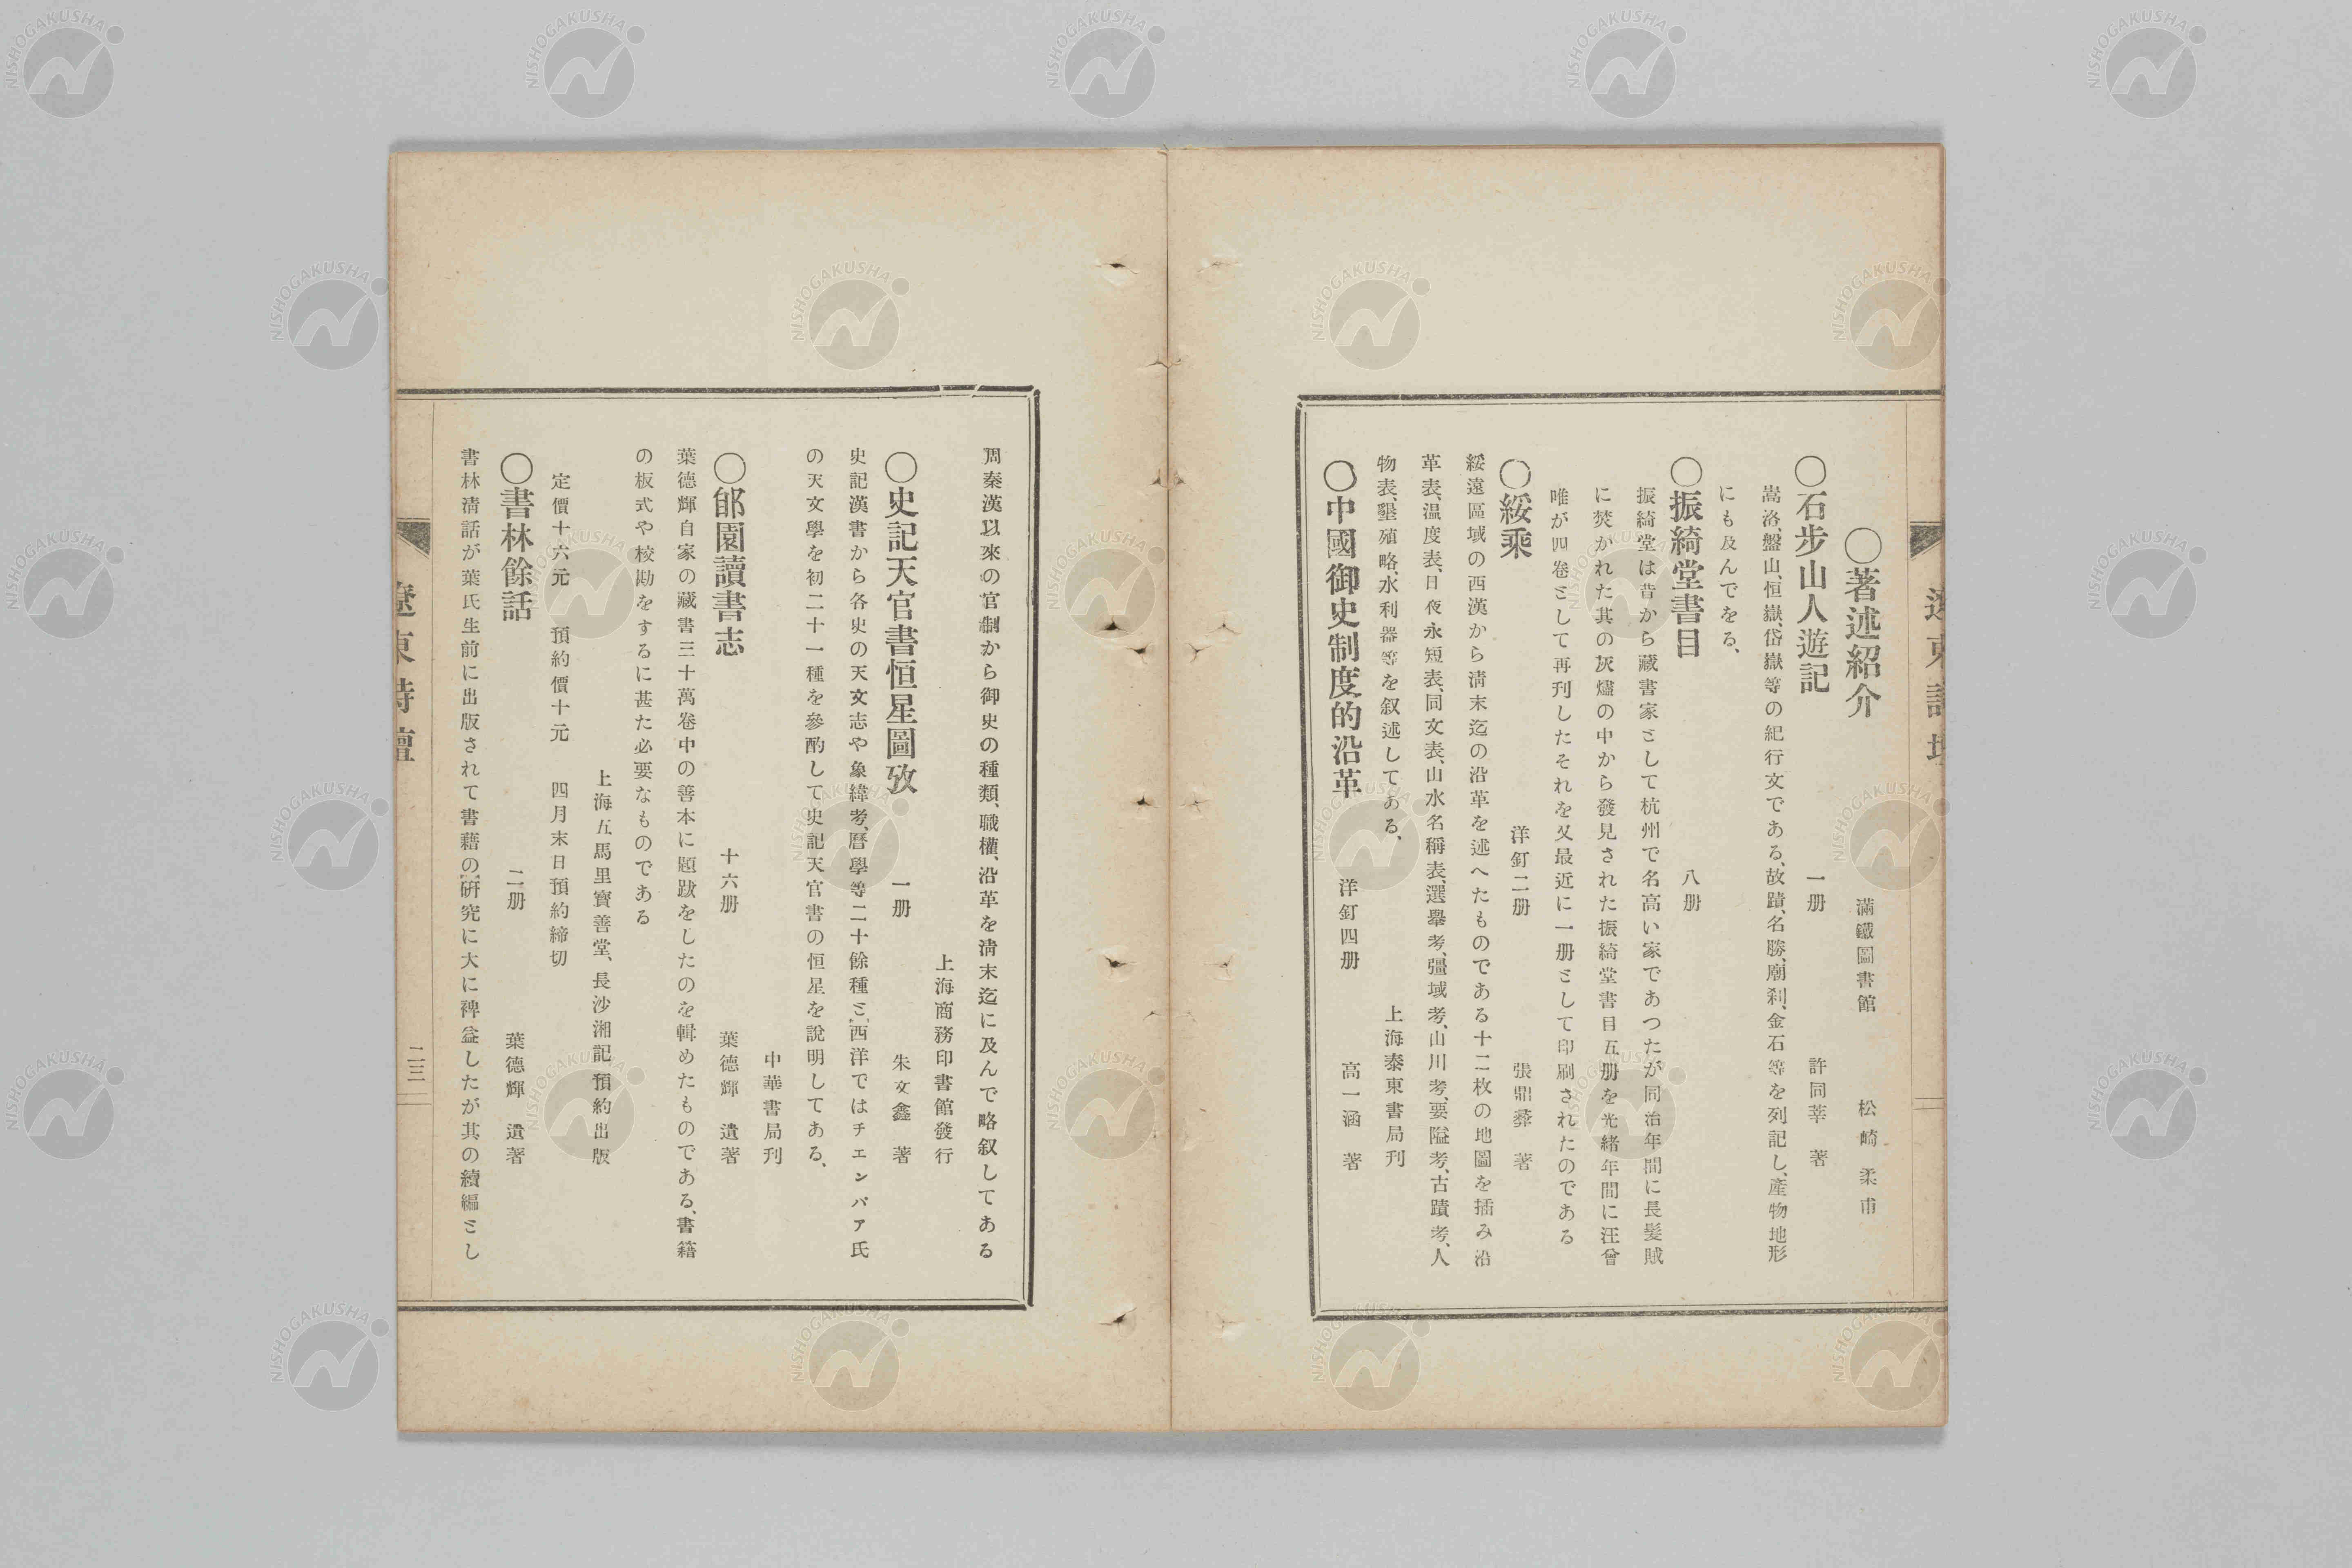 遼東詩壇
〇著述紹介　滿鐵圖書館　松崎柔甫
〇石步山人遊記　一册　許同莘　著
嵩洛、盤山、恒嶽、岱嶽等の紀行文である、故蹟、名勝、廟刹、金石等を列記し、產物地形
にも及んでをる、
〇振綺堂書目　八册
振綺堂は昔から藏書家ミして杭州で名高い家であつたが同治年間に長髮賊
に焚かれた其の灰燼の中から發見された振綺堂書目五册を光緒年間に汪曾
唯が四卷ミして再刊したそれを又最近に一册ミして印刷されたのである
〇綏乘　洋釘二册　張鼎彝　著
綏遠區域の西漢から淸末迄の沿革を述へたものである十二枚の地圖を插み沿
革表、温度表、日夜永短表、同文表、山水名稱表、選擧考、彊域考、山川考、要隘考、古蹟考、人
物表、墾殖略、水利器等を叙述してある、　上海泰東書局刊
〇中國御史制度的沿革　洋釘四册　高一涵　著
周秦漢以來の官制から御史の種類、職權、沿革を淸末迄に及んで略叙してある
上海商務印書館發行
〇史記天官書恒星圖攷　一册　朱文鑫　著
史記漢書から各史の天文志や象緯考、曆學等二十餘種ミ西洋ではチエンバア氏
の天文學を初二十一種を參酌して史記天官書の恒星を說明してある、
中華書局刊
〇郋園讀書志　十六册　葉德輝　遺著
葉德輝自家の藏書三十萬卷中の善本に題跋をしたのを輯めたものである、書籍
の板式や校勘をするに甚た必要なものである
上海五馬里寶善堂、長沙湘記預約出版
定價十六元　預約價十元　四月末日預約締切
〇書林餘話　二册　葉德輝　遺著
書林淸話が葉氏生前に出版されて書藉の硏究に大に裨益したが其の續編ミし
遼東詩壇
二三
NISHOGAKUSHA